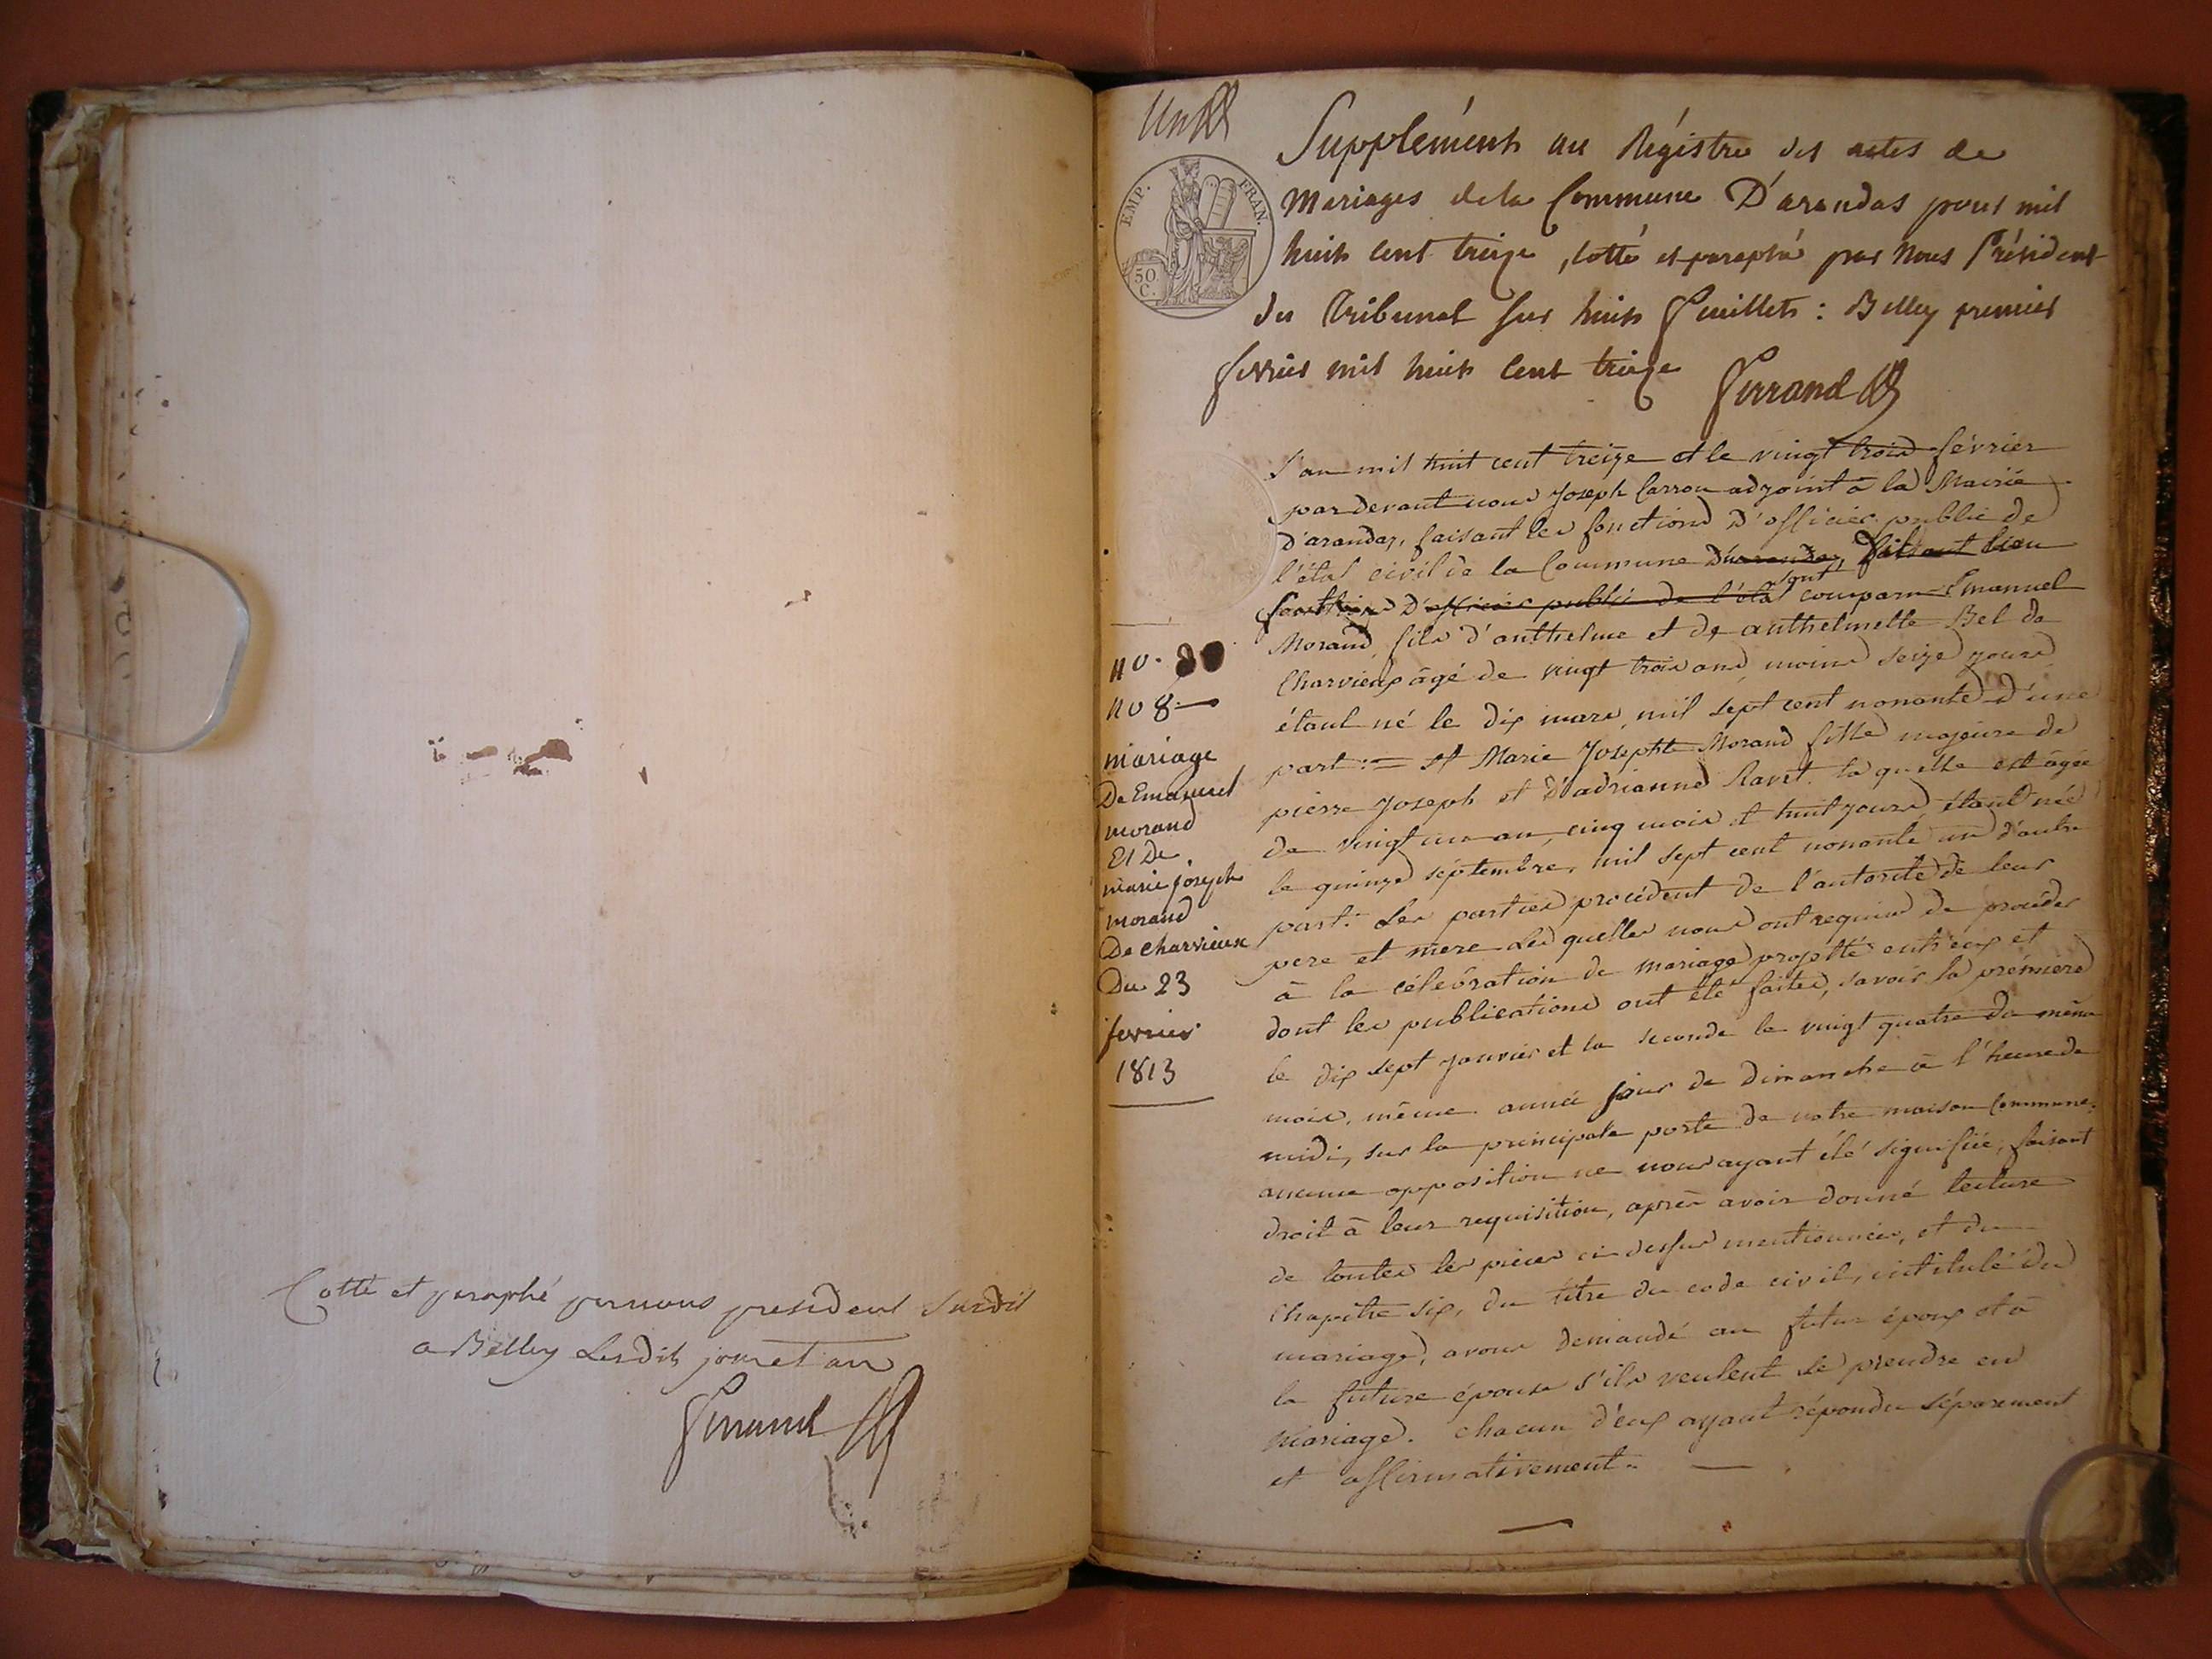 Cotté et paraphé par nous president Susdit
a Belley Lesdits jour et an
Ferrand
Un
EMP. FRAN.
50 C.
Supplément au Régistre des actes de
Mariages de la Commune D'arandas pour mil
huit cent treize, cotté et paraphé par Nous Président
du Tribunal sur huit feuillets : Belley premier
fevrier mil huit cent treize Ferrand
no. 8
mariage
De Emanuel
morand
Et De
marie joseph
morand
De charvieux
Du 23
fevrier
1813
L'an mil huit cent treize et le vingt trois février
pardevant nous Joseph Carron adjoint à la Mairie
d'arandas, faisant les fonctions d'officier public de
l'état civil de la Commune D'arandas, faisant
fonctions d'officier public de l'état sont comparu Emanuel
Morand, fils d'anthelme et de anthelmette Bel de
Charvieux âgé de vingt trois ans, moins seize jours
étant né le dix mars, mil sept cent nonante d'une
part := et Marie Josephte Morand fille majeure de
pierre Joseph et d'adrianne Ravet laquelle est âgée
de vingt un an, cinq mois et huit jours, étant née
le quinze séptembre, mil sept cent nonante un d'autre
part. Les parties procédent de l'autorité de leur
pere et mere lesquelles nous ont requis de procéder
à la célébration de mariage projetté entr'eux et
dont les publications ont été faites, savoir la première
le dix sept janvier et la seconde le vingt quatre du même
mois, même année jour de dimanche à l'heure de
midi, sur la principale porte de notre maison Commune,
aucune opposition ne nous ayant été signifiée, faisant
droit à leur requisition, après avoir donné lecture
de toutes les pièces ci dessus mentionnées, et du
Chapitre six, du titre du code civil, intitulé du
mariage, avons demandé au futur époux et à
la future épouse s'ils veulent se prendre en
mariage. chacun d'eux ayant répondu séparement
et affirmativement.